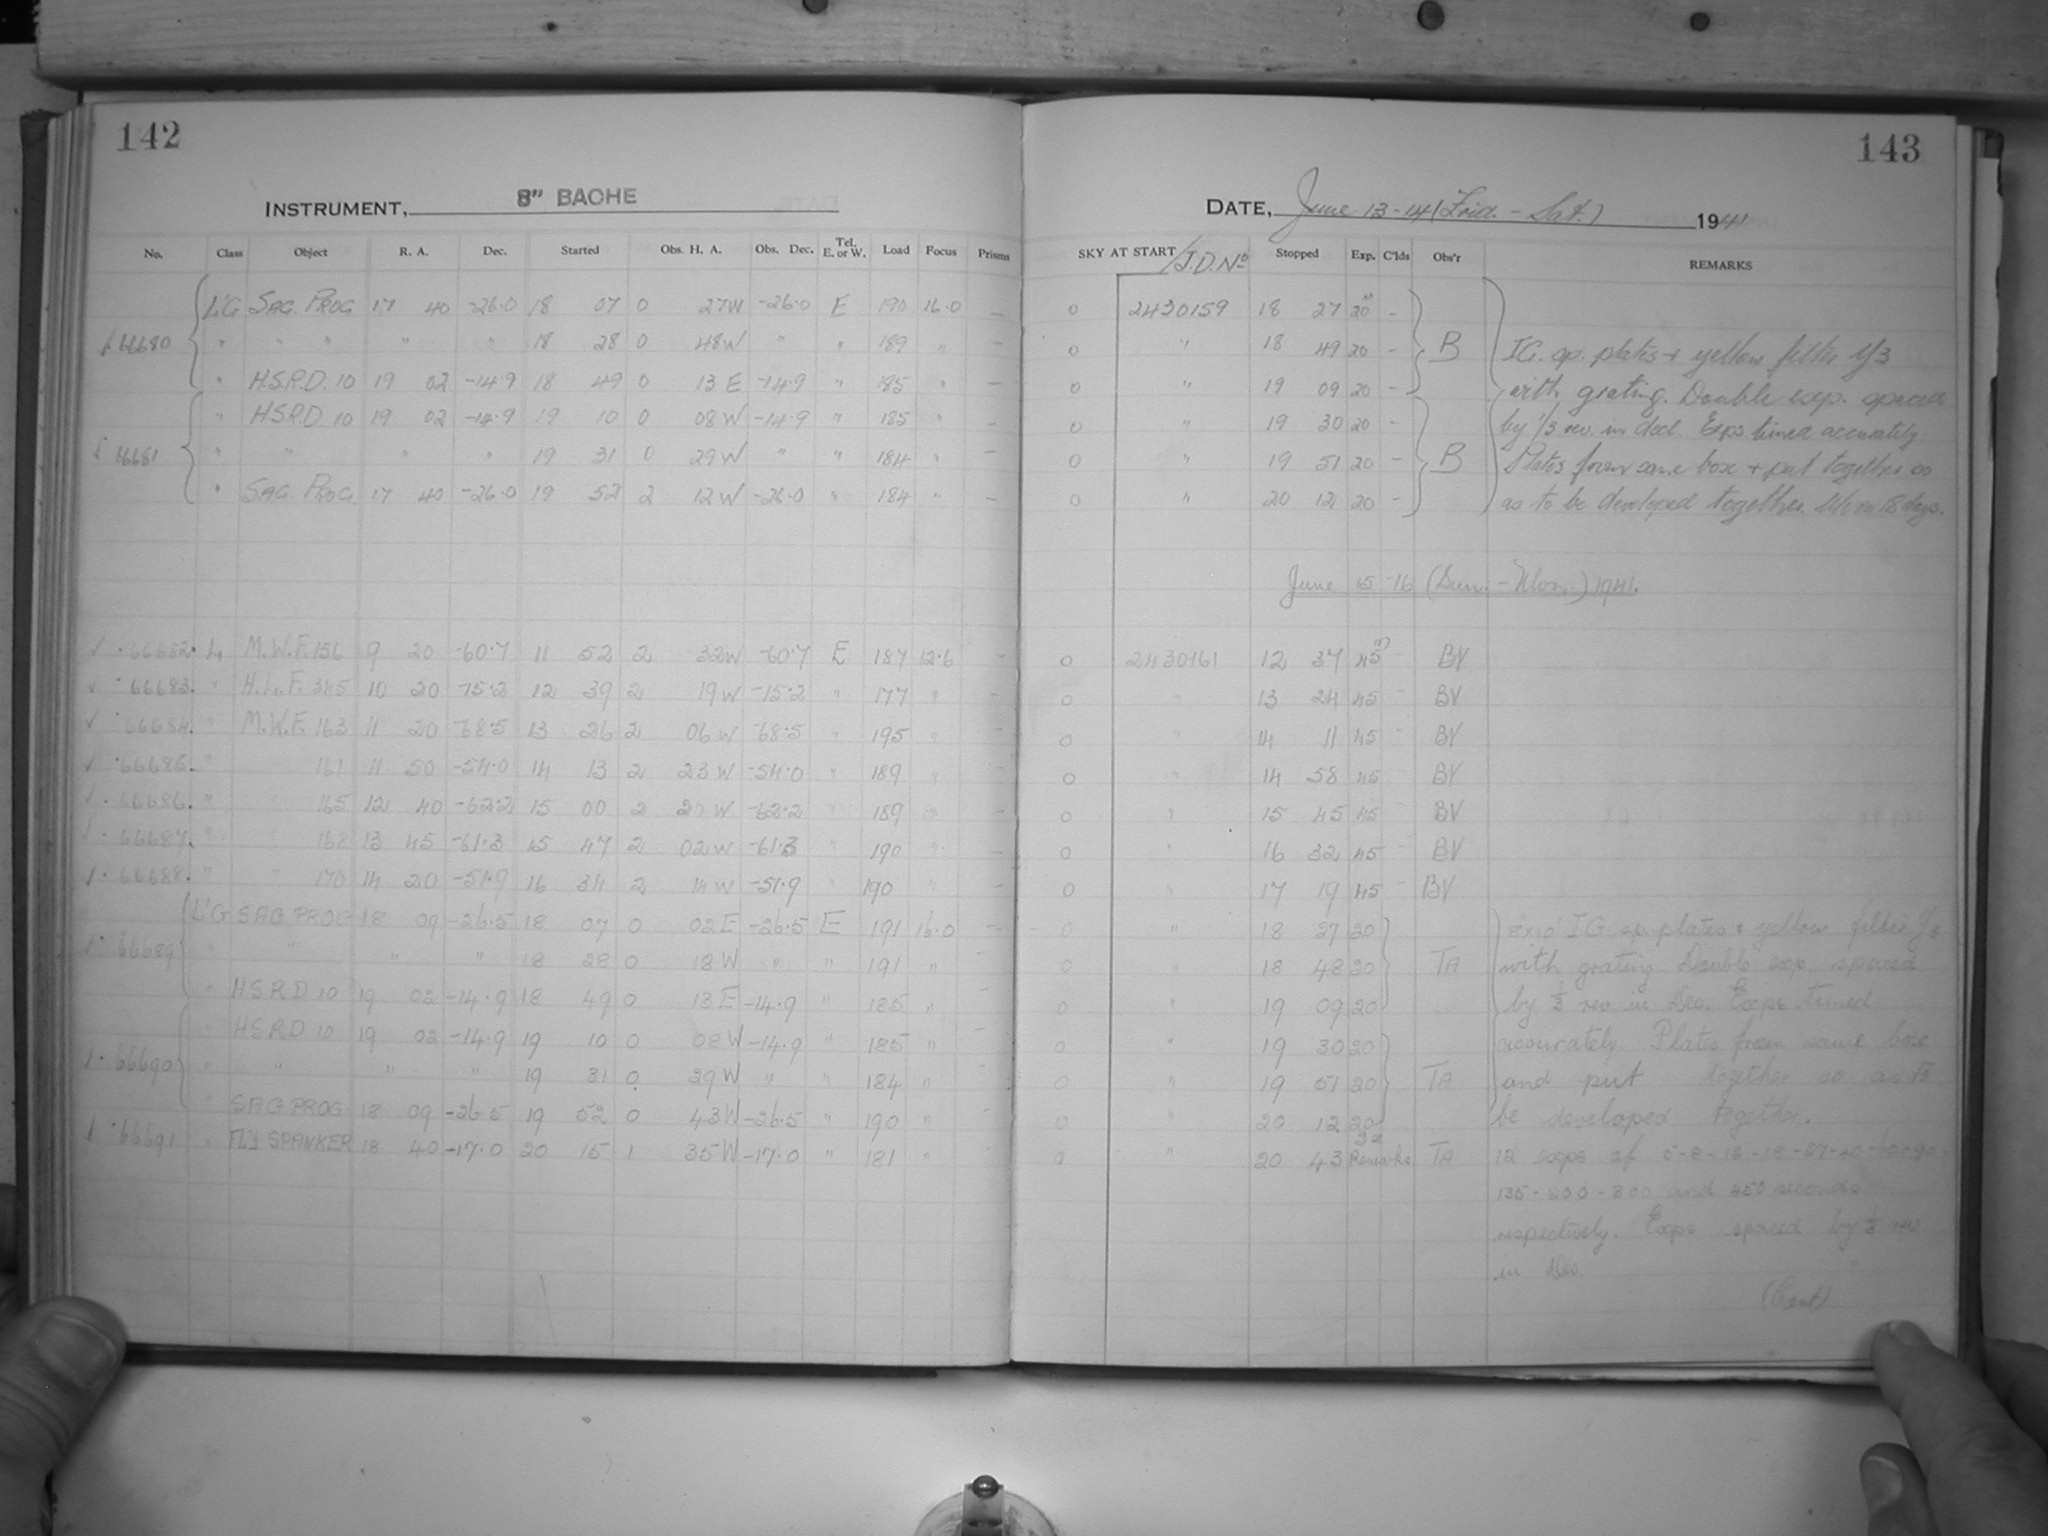 142
INSTRUMENT, 8" BACHE
No. Class Object R. A. Dec. Started Obs. H. A. Obs. Dec. Tel. E. or W. Load Focus Prisms
L'G SAG. PROG 17 40 -26.0 18 07 0 27W -26.0 E 190 16.0 –
✓ 66680 " " " " " 18 28 0 48W " " 189 " –
" H.S.P.D. 10 19 02 -14.9 18 49 0 13 E -14.9 " 185 " –
" H.S.P.D. 10 19 02 -14.9 19 10 0 08 W -14.9 " 185 " –
✓ 66681 " " " " 19 31 0 29W " " 184 " –
" SAG. PROG. 17 40 -26.0 19 52 2 12W -26.0 " 184 " –
✓ 66682 L M.W.F. 156 9 20 -60.7 11 52 2 32W -60.7 E 187 12.6 –
✓ 66683. " H.L.F. 345 10 20 -15.2 12 39 2 19W -15.2 " 177 " –
✓ 66684. " M.W.F. 163 11 20 -68.5 13 26 2 06W -68.5 " 195 " –
✓ 66685. " 161 11 50 -54.0 14 13 2 23W -54.0 " 189 " –
✓ 66686. " " 165 12 40 -62.2 15 00 2 20W -62.2 " 189 " –
✓ 66687. " " 168 13 45 -61.3 15 47 2 02W -61.3 " 190 " –
✓ 66688. " " 170 14 20 -51.9 16 34 2 14W -51.9 " 190 " –
L'G SAG PROG 18 09 -26.5 18 07 0 02E -26.5 E 191 16.0 –
66689 " " " " 18 28 0 18W " " 191 " –
" H.S.P.D 10 19 02 -14.9 18 49 0 13E -14.9 " 185 "
" H.S.P.D 10 19 02 -14.9 19 10 0 08W -14.9 " 185 " –
66690 " " " " 19 31 0 29W " " 184 " –
" SAG PROG 18 09 -26.5 19 52 0 43W -26.5 " 190 " –
66691 " FLY SPANKER 18 40 -17.0 20 15 1 35W -17.0 " 181 " –
143
DATE, June 13-14 (Frid. - Sat.) 1941
SKY AT START / J.D. No Stopped Exp. C'lds Obs'r REMARKS
0 2430159 18 27 20m –
0 " 18 49 20 – B I G. sp. plates + yellow filter 1/3
0 " 19 09 20 – with grating. Double exp. spaced
0 " 19 30 20 – by 1/3 rev. in decl. Exps timed accurately
0 " 19 51 20 – B Plates from same box + put together so
0 " 20 12 20 – as to be developed together. 18 days.
June 15-16 (Sun. - Mon.) 1941.
0 2430161 12 37 45m – BV
0 " 13 24 45 – BV
0 " 14 11 45 – BV
0 " 14 58 45 BV
0 " 15 45 45 BV
0 " 16 32 45 BV
0 " 17 19 45 – BV
0 " 18 27 20 8x10 I G. sp. plates + yellow filter 1/3
0 " 18 48 20 TA with grating. Double exp. spaced
0 " 19 09 20 by 1/3 rev. in Dec. Exps timed
0 " 19 30 20 accurately Plates from same box
0 " 19 51 20 TA and put together so as to
0 " 20 12 20 be developed together.
0 " 20 43 Remarks TA 12 exps of 5-8-12-18-27-40-60-90-
135-200-300 and 450 seconds
respectively. Exps spaced by 1/3 rev
in Dec
(Cont)